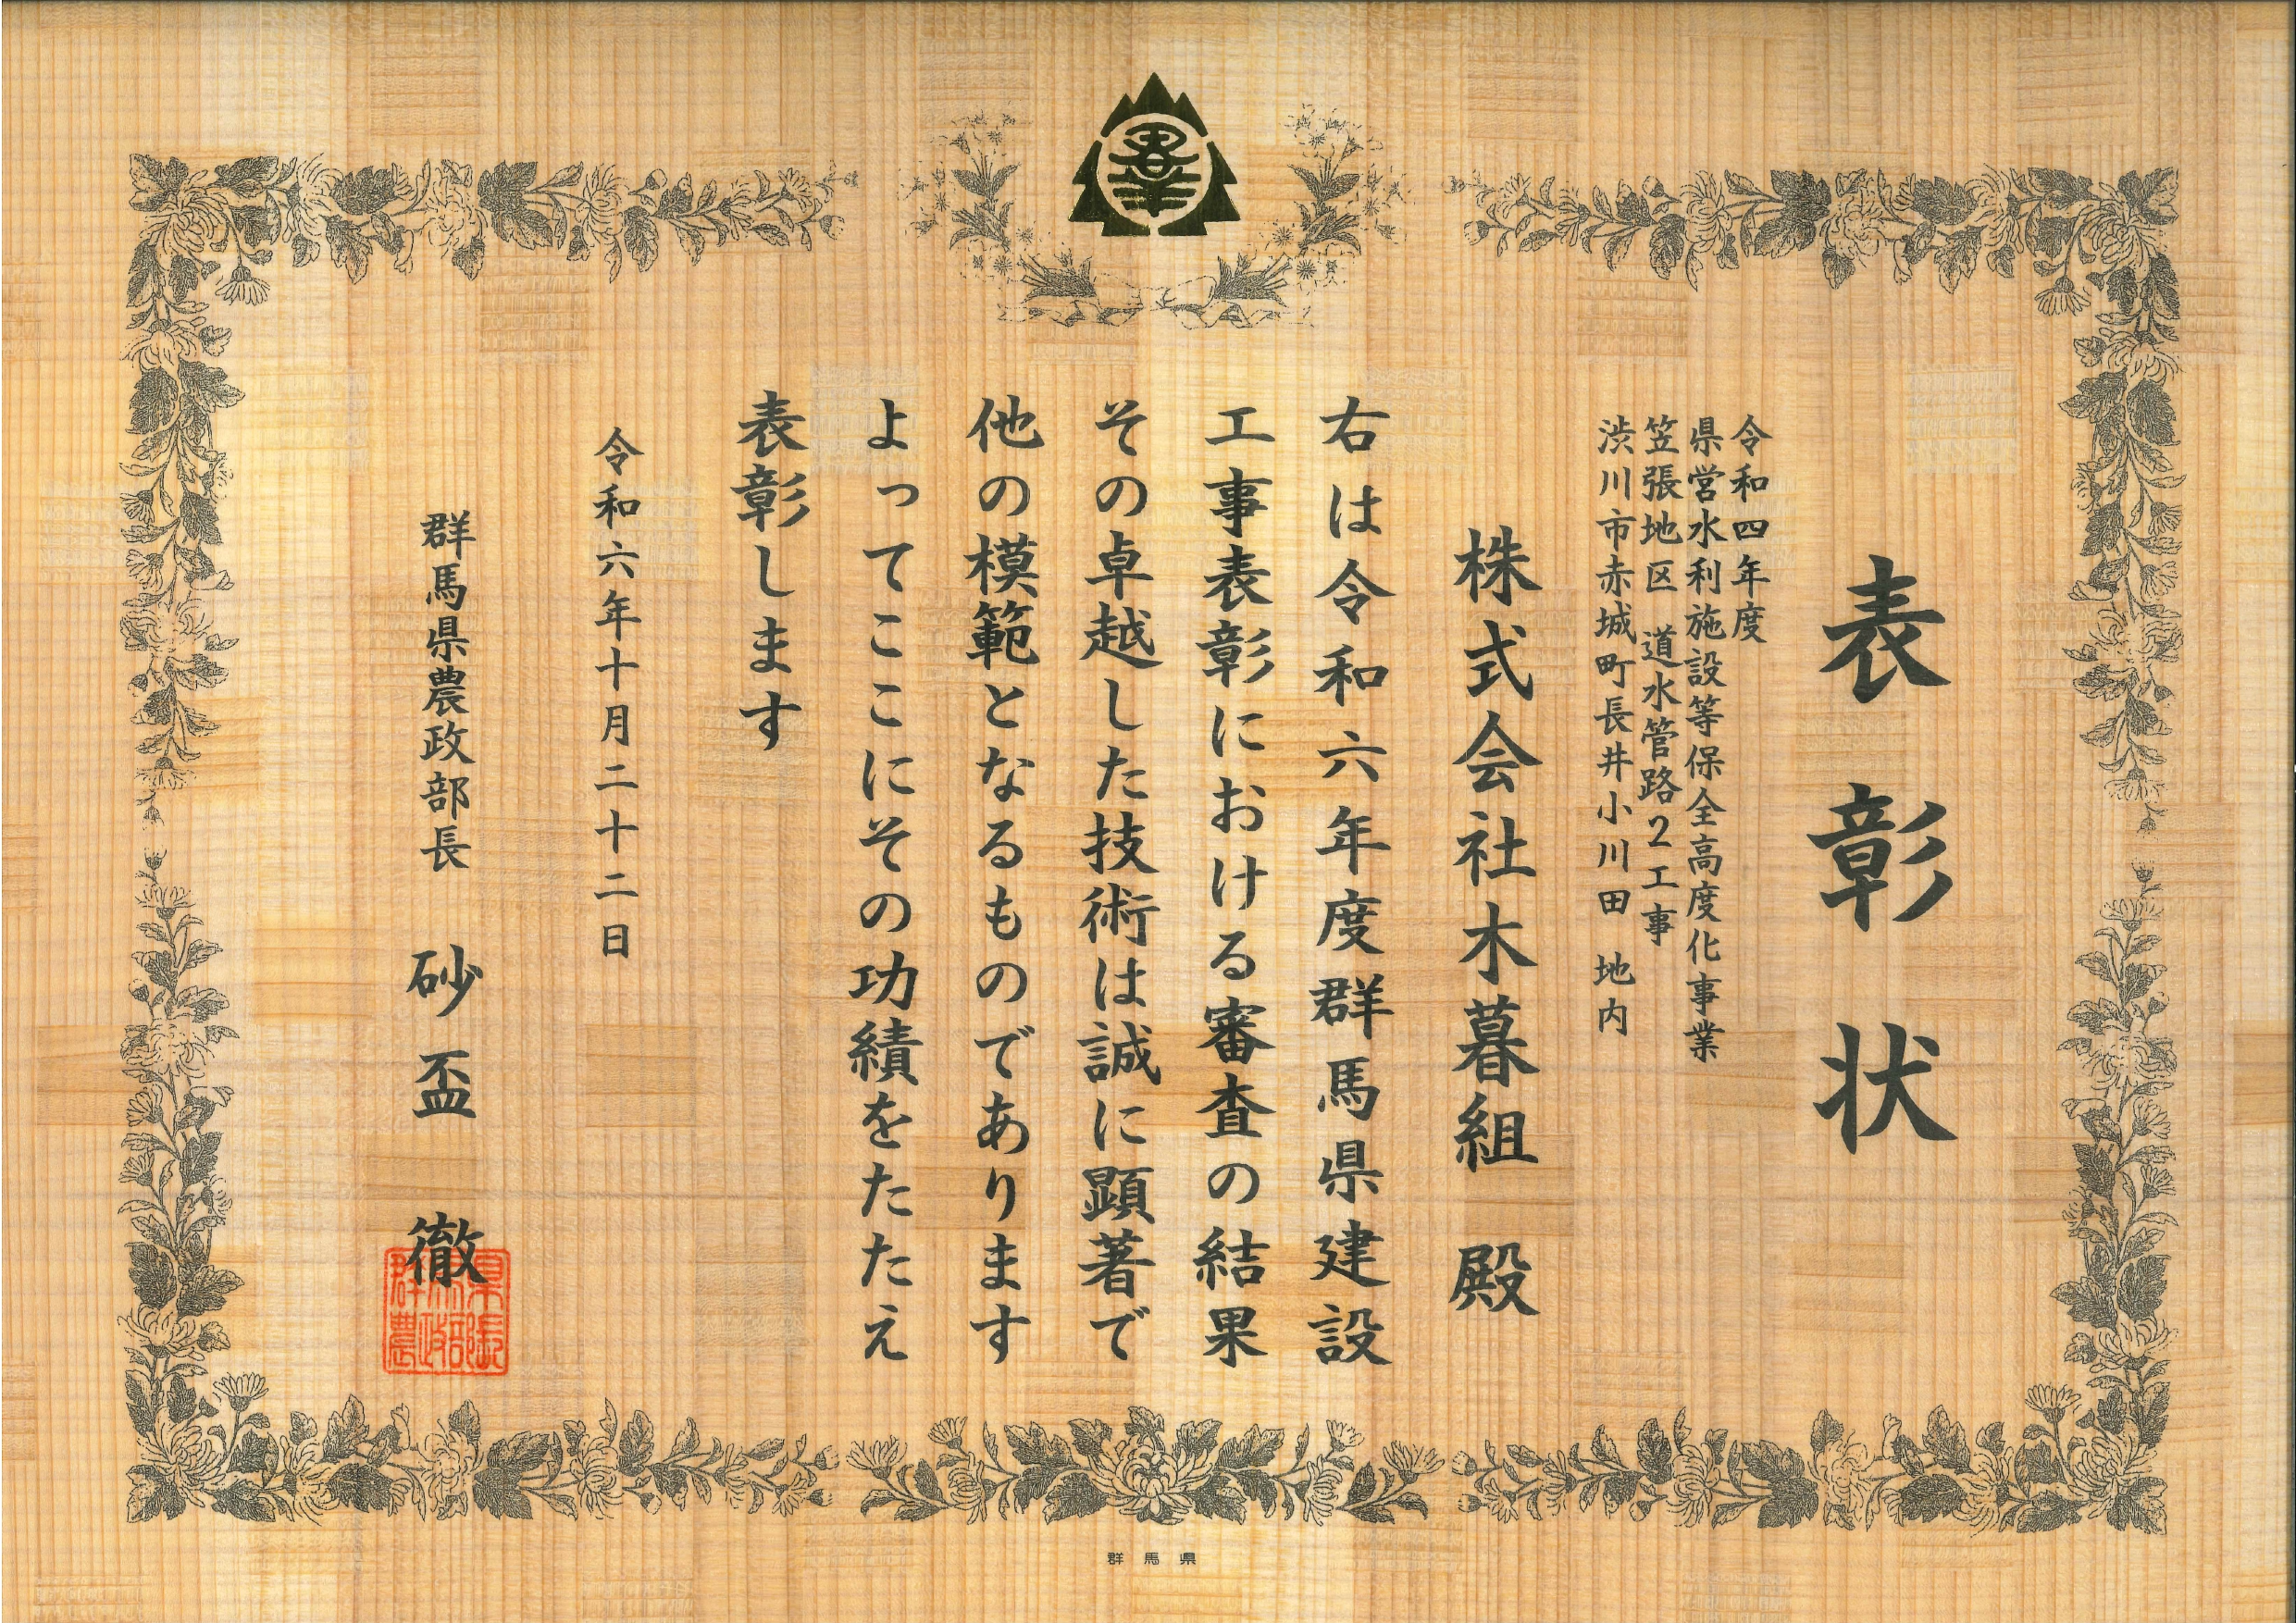 表彰状
令和四年度
県営水利施設等保全高度化事業
笠張地区 道水管路2工事
渋川市赤城町長井小川田 地内
株式会社木暮組 殿
右は令和六年度群馬県建設
工事表彰における審査の結果
その卓越した技術は誠に顕著で
他の模範となるものであります
よってここにその功績をたたえ
表彰します
令和六年十月二十二日
群馬県農政部長 砂盃 徹
群馬県
農政部長
群馬県